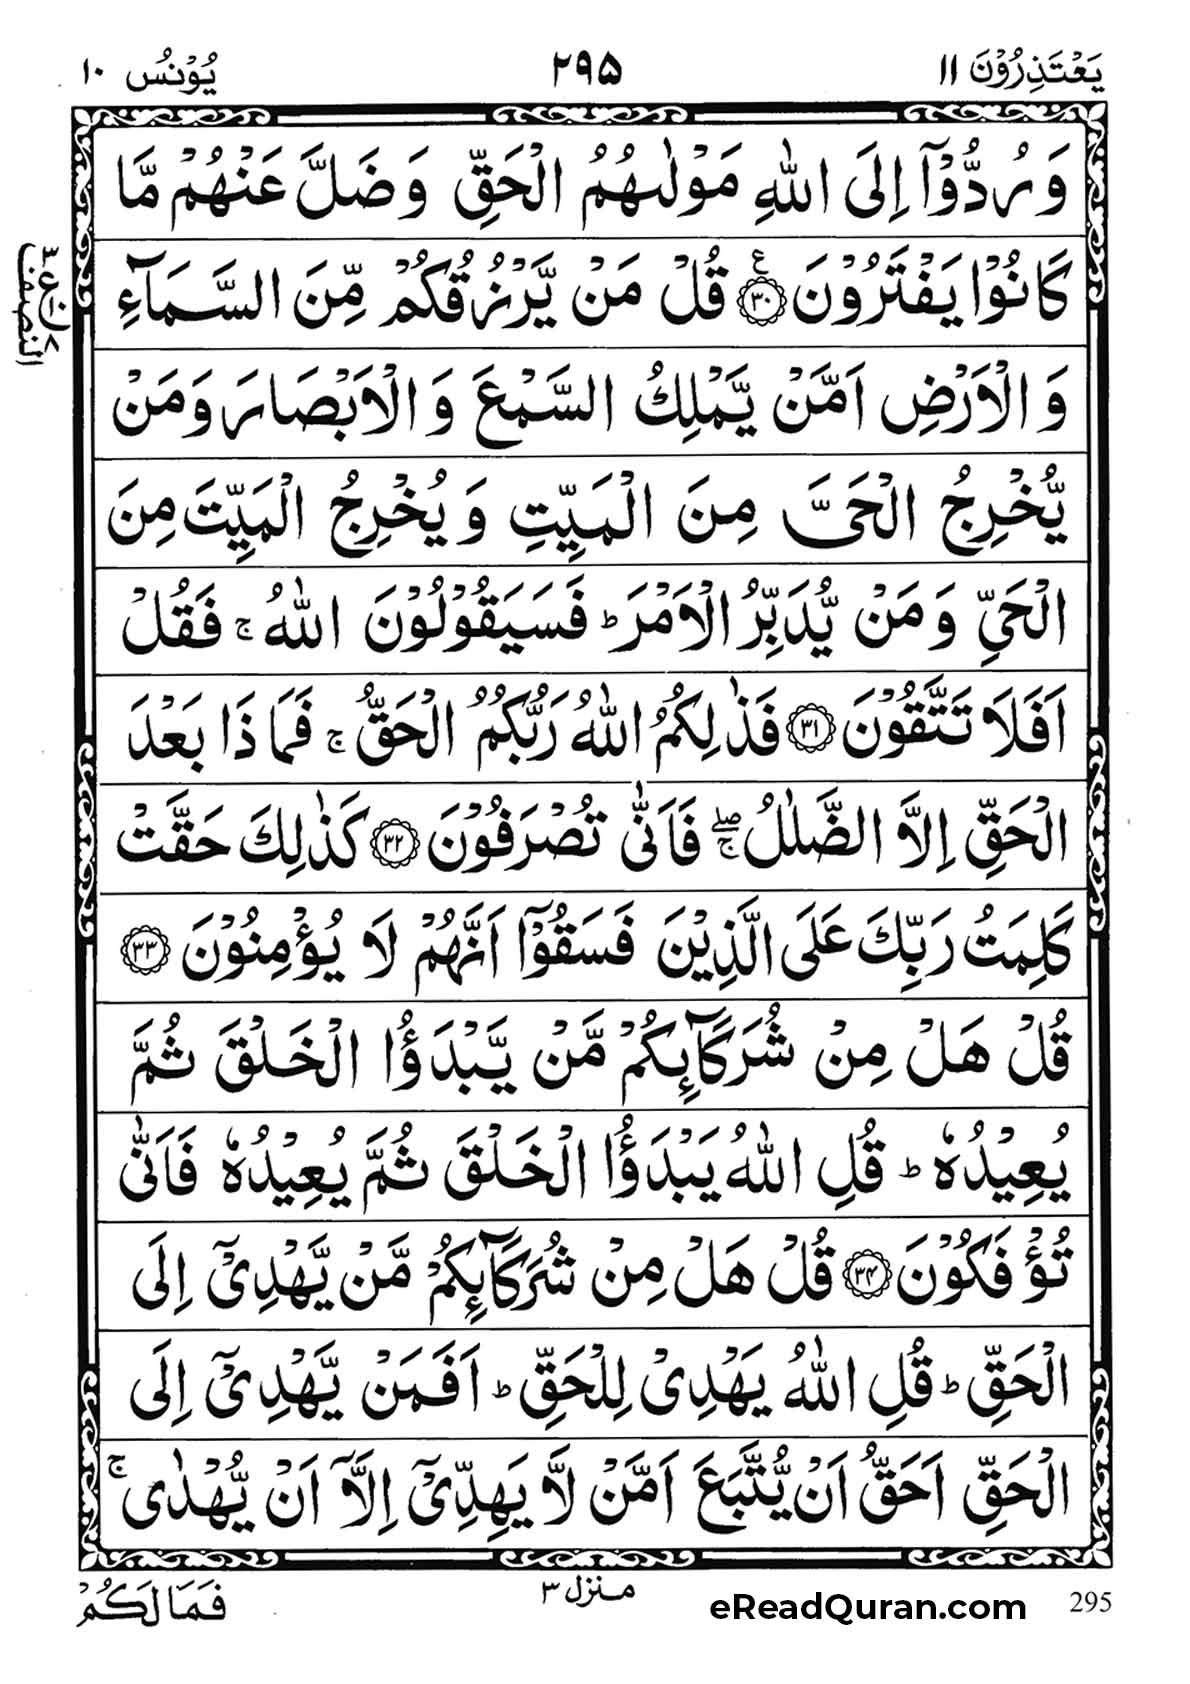 يَعْتَذِرُوْنَ ١١
٢٩٥
يُوْنُس ١٠
وَ رُدُّوْۤا اِلَى اللّٰهِ مَوْلٰىهُمُ الْحَقِّ وَ ضَلَّ عَنْهُمْ مَّا
كَانُوْا يَفْتَرُوْنَ ٣٠ ع قُلْ مَنْ يَّرْزُقُكُمْ مِّنَ السَّمَآءِ
وَ الْاَرْضِ اَمَّنْ يَّمْلِكُ السَّمْعَ وَ الْاَبْصَارَ وَ مَنْ
يُّخْرِجُ الْحَيَّ مِنَ الْمَيِّتِ وَ يُخْرِجُ الْمَيِّتَ مِنَ
الْحَيِّ وَ مَنْ يُّدَبِّرُ الْاَمْرَ ؕ فَسَيَقُوْلُوْنَ اللّٰهُ ۚ فَقُلْ
اَفَلَا تَتَّقُوْنَ ٣١ فَذٰلِكُمُ اللّٰهُ رَبُّكُمُ الْحَقُّ ۚ فَمَا ذَا بَعْدَ
الْحَقِّ اِلَّا الضَّلٰلُ ۚۖ فَاَنّٰى تُصْرَفُوْنَ ٣٢ كَذٰلِكَ حَقَّتْ
كَلِمَتُ رَبِّكَ عَلَى الَّذِيْنَ فَسَقُوْۤا اَنَّهُمْ لَا يُؤْمِنُوْنَ ٣٣
قُلْ هَلْ مِنْ شُرَكَآىِٕكُمْ مَّنْ يَّبْدَؤُا الْخَلْقَ ثُمَّ
يُعِيْدُهٗ ؕ قُلِ اللّٰهُ يَبْدَؤُا الْخَلْقَ ثُمَّ يُعِيْدُهٗ فَاَنّٰى
تُؤْفَكُوْنَ ٣٤ قُلْ هَلْ مِنْ شُرَكَآىِٕكُمْ مَّنْ يَّهْدِيْۤ اِلَى
الْحَقِّ ؕ قُلِ اللّٰهُ يَهْدِيْ لِلْحَقِّ ؕ اَفَمَنْ يَّهْدِيْۤ اِلَى
الْحَقِّ اَحَقُّ اَنْ يُّتَّبَعَ اَمَّنْ لَّا يَهِدِّيْۤ اِلَّاۤ اَنْ يُّهْدٰى ۚ
النصف
فَمَا لَكُمْ
منزل ٣
eReadQuran.com
295